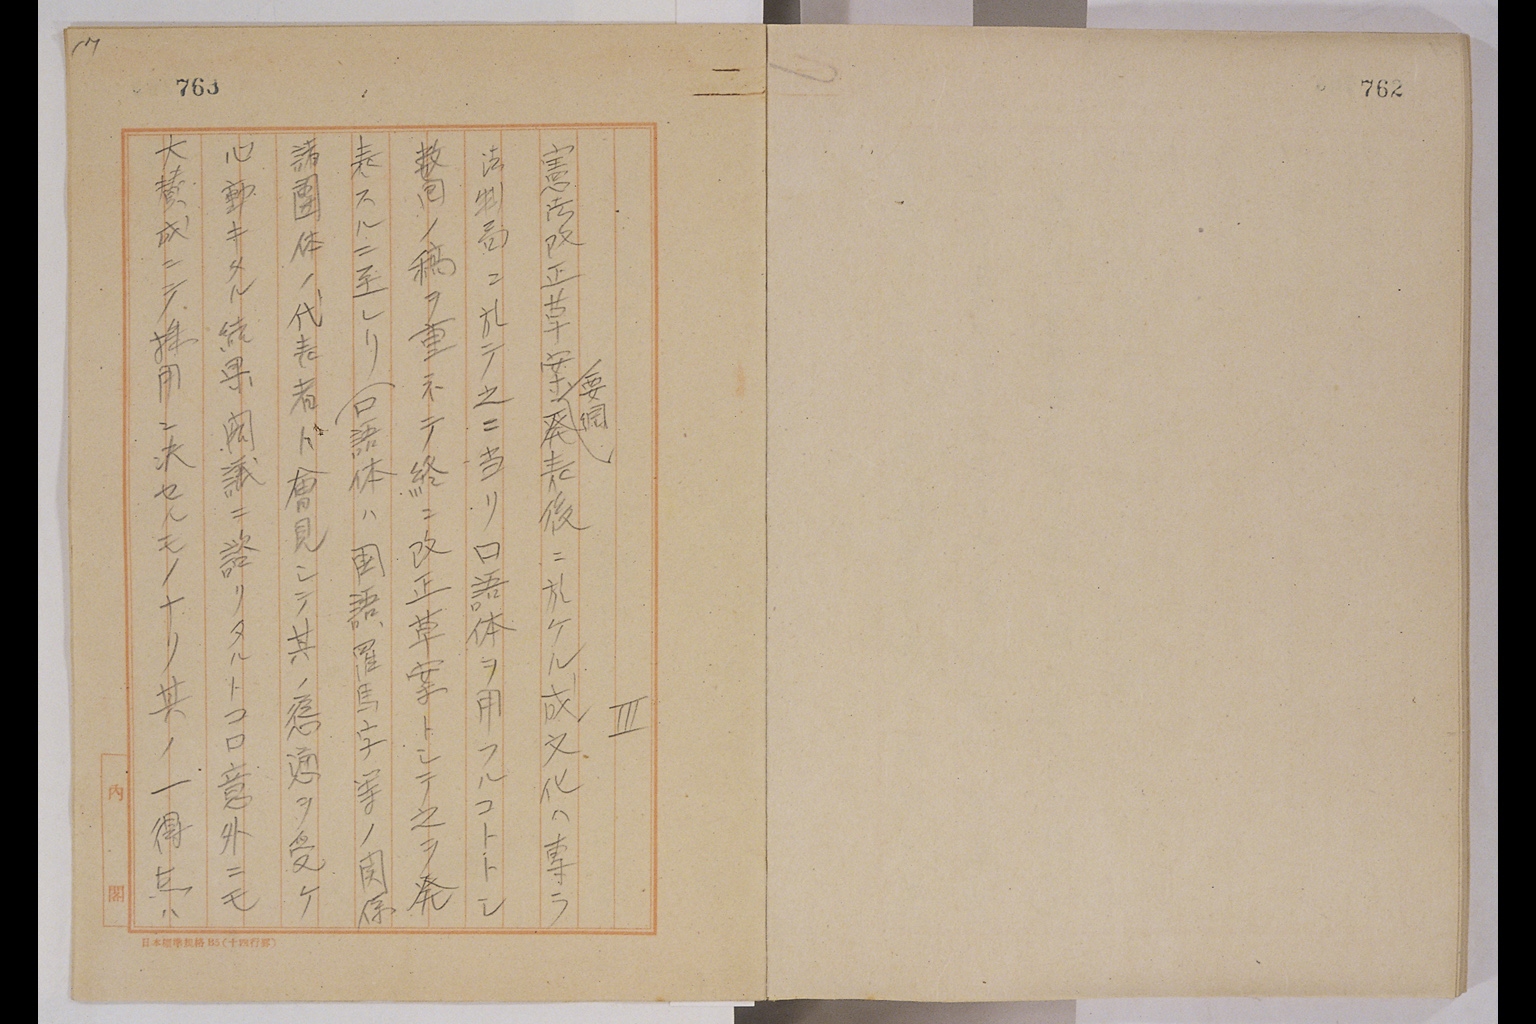 762
二
17
763
III
憲法改正草案要綱発表後ニ於ケル成文化ハ専ラ
法制局ニ於テ之ニ当リ口語体ヲ用フルコトトシ
数回ノ稿ヲ重ネテ終ニ改正草案トシテ之ヲ発
表スルニ至レリ(口語体ハ国語、羅馬字等ノ関係
諸團体ノ代表者ト會見シテ其ノ慫慂ヲ受ケ
心動キタル結果閣議ニ諮リタルトコロ意外ニモ
大賛成ニテ採用ニ決セルモノナリ其ノ一得失ハ
内閣
日本標準規格B5(十四行罫)